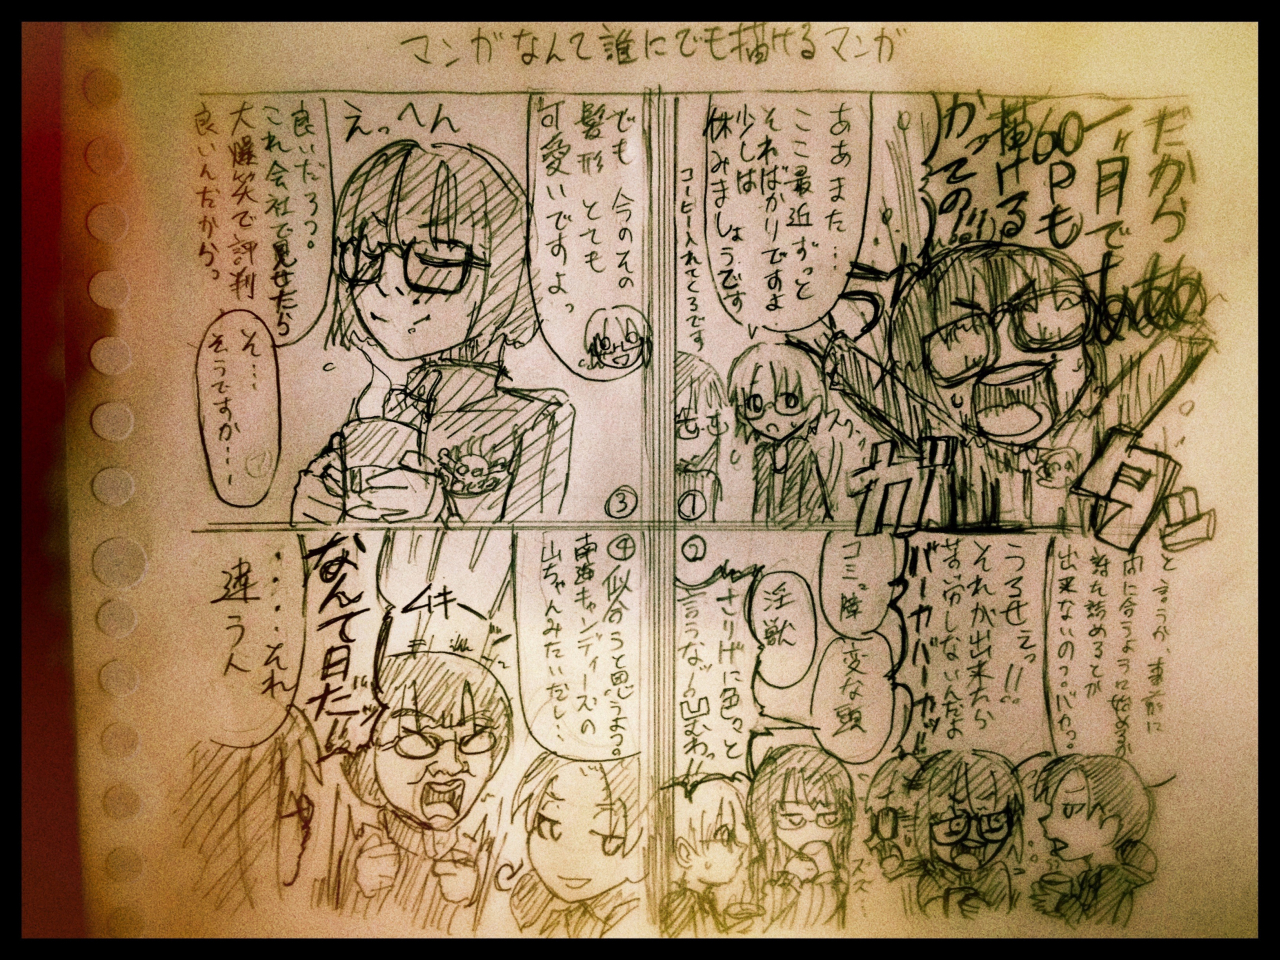 マンガなんて誰にでも描けるマンガ
だから
一ヶ月で
60Pも
描ける
かっての!!!
あああ
ガ
ああまた…
ここ最近ずっと
そればかりですよ
少しは
休みましょうです
コーヒー入れてくるです
①
と言うか、事前に
間に合うように始めるか
誰も詰めるとか
出来ないのっ。バカっ。
うるせえっ!!
それが出来たら
苦労しないんだよ
バーカバーカッ!!
コミュ障
変な頭
淫獣
②
さりげに色々と
言うなッ〜凹むわっ!!
ズズ…
でも 今のその
髪形 とても
可愛いですよっ
えっへん
良いだろっ。
これ会社で見せたら
大爆笑で評判
良いんだからっ
そ…
そうですか…
③
④
似合うと思うよっ。
南海キャンディーズの
山ちゃんみたいだし…
ムキー
なんて日だッ!!
…それ
違うん